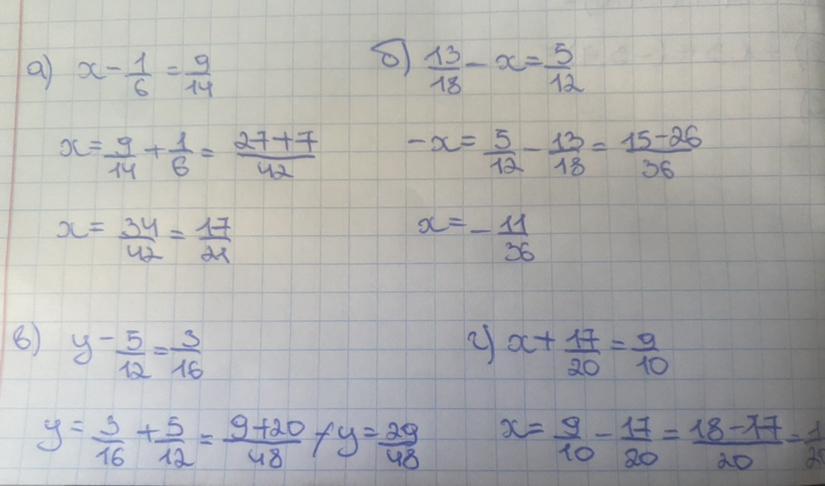 а) x - 1/6 = 9/14
x = 9/14 + 1/6 = (27+7)/42
x = 34/42 = 17/21
б) 13/18 - x = 5/12
-x = 5/12 - 13/18 = (15-26)/36
x = - 11/36
в) y - 5/12 = 3/16
y = 3/16 + 5/12 = (9+20)/48 / y = 29/48
г) x + 17/20 = 9/10
x = 9/10 - 17/20 = (18-17)/20 = 1/20